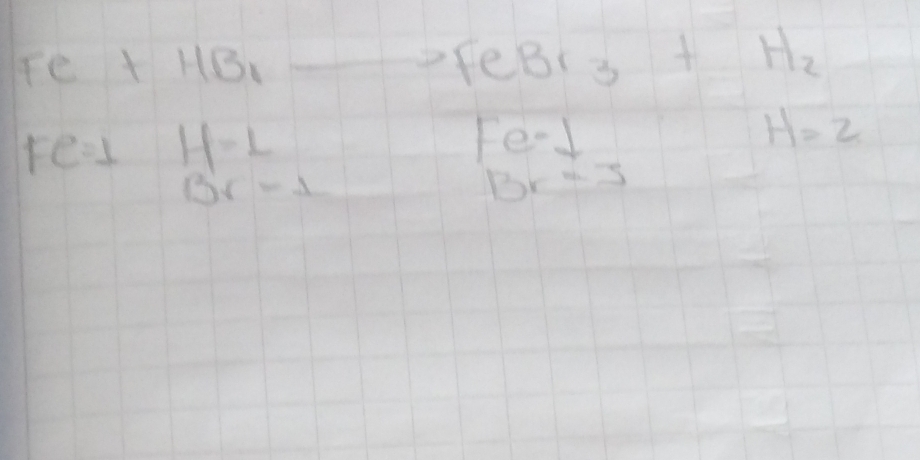 Fe + HBr → FeBr3 + H2
Fe=1 H-1 Fe-1 H=2
Br-1 Br=3